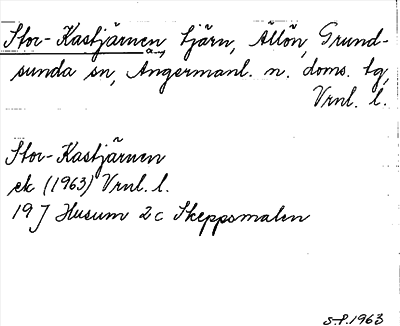 Stor-Kastjärnen, tjärn, Ällön, Grund-
sunda sn, Ångermanl. n. doms. tg,
Vrnl. l.
Stor-Kastjärnen
ek (1963) Vrnl. l.
19 J Husum 2 c Skeppsmalen
S.F. 1963